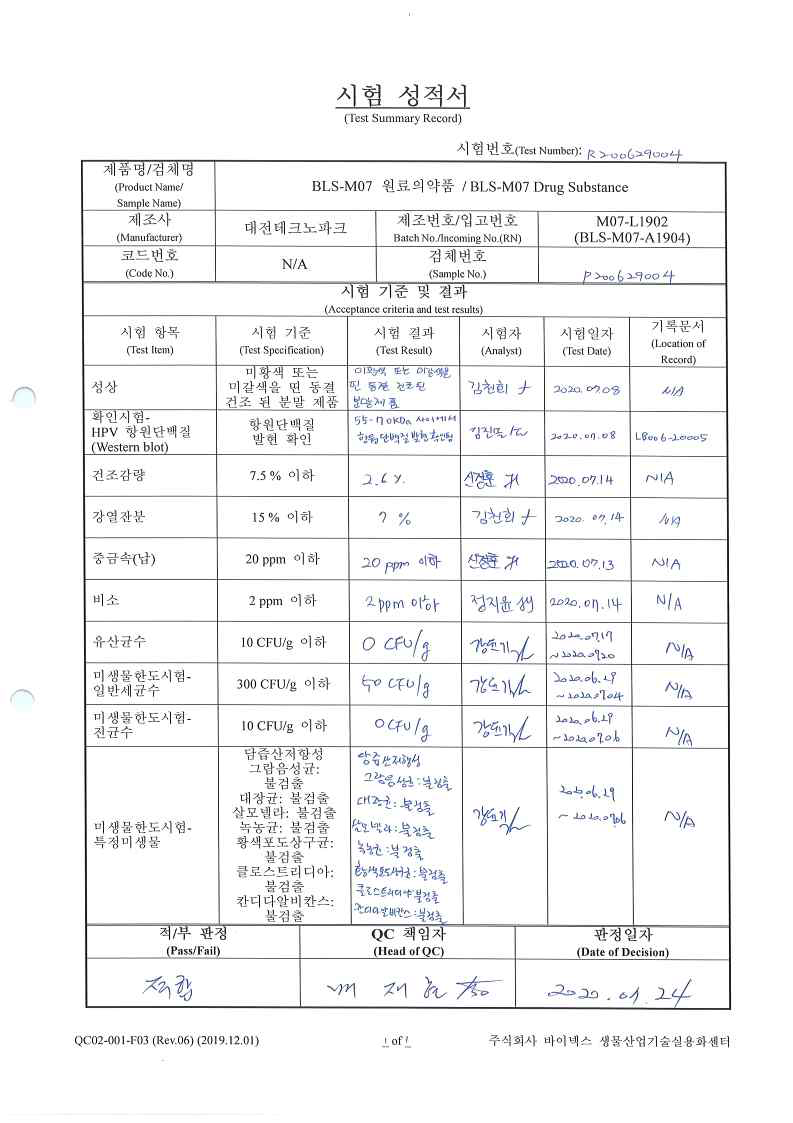 시험 성적서
(Test Summary Record)
시험번호(Test Number): R200629004
제품명/검체명
(Product Name/
Sample Name)
BLS-M07 원료의약품 / BLS-M07 Drug Substance
제조사
(Manufacturer)
대전테크노파크
제조번호/입고번호
Batch No./Incoming No.(RN)
M07-L1902
(BLS-M07-A1904)
코드번호
(Code No.)
N/A
검체번호
(Sample No.)
P200629004
시험 기준 및 결과
(Acceptance criteria and test results)
시험 항목
(Test Item)
시험 기준
(Test Specification)
시험 결과
(Test Result)
시험자
(Analyst)
시험일자
(Test Date)
기록문서
(Location of
Record)
성상
미황색 또는
미갈색을 띤 동결
건조 된 분말 제품
미황색 또는 미갈색을
띤 동결 건조된
분말제품
김천희
2020.07.08
N/A
확인시험-
HPV 항원단백질
(Western blot)
항원단백질
발현 확인
55-70KDa 사이에서
항원단백질 발현 확인됨
2020.07.08
LB006-20005
건조감량
7.5 % 이하
2.6 %
신정훈
2020.07.14
N/A
강열잔분
15 % 이하
7 %
김천희
2020.07.14
N/A
중금속(납)
20 ppm 이하
20 ppm 이하
신정훈
2020.07.13
N/A
비소
2 ppm 이하
2ppm 이하
정지윤
2020.07.14
N/A
유산균수
10 CFU/g 이하
0 CFU/g
2020.07.17
~2020.07.20
N/A
미생물한도시험-
일반세균수
300 CFU/g 이하
50 CFU/g
2020.06.29
~2020.07.04
N/A
미생물한도시험-
진균수
10 CFU/g 이하
0 CFU/g
2020.06.29
~2020.07.06
N/A
미생물한도시험-
특정미생물
담즙산저항성
그람음성균:
불검출
대장균: 불검출
살모넬라: 불검출
녹농균: 불검출
황색포도상구균:
불검출
클로스트리디아:
불검출
칸디다알비칸스:
불검출
담즙산저항성
그람음성균:불검출
대장균:불검출
살모넬라:불검출
녹농균:불검출
황색포도상구균:불검출
클로스트리디아:불검출
칸디다알비칸스:불검출
2020.06.29
~2020.07.06
N/A
적/부 판정
(Pass/Fail)
QC 책임자
(Head of QC)
판정일자
(Date of Decision)
적합
2020.07.24
QC02-001-F03 (Rev.06) (2019.12.01)
1 of 1
주식회사 바이넥스 생물산업기술실용화센터